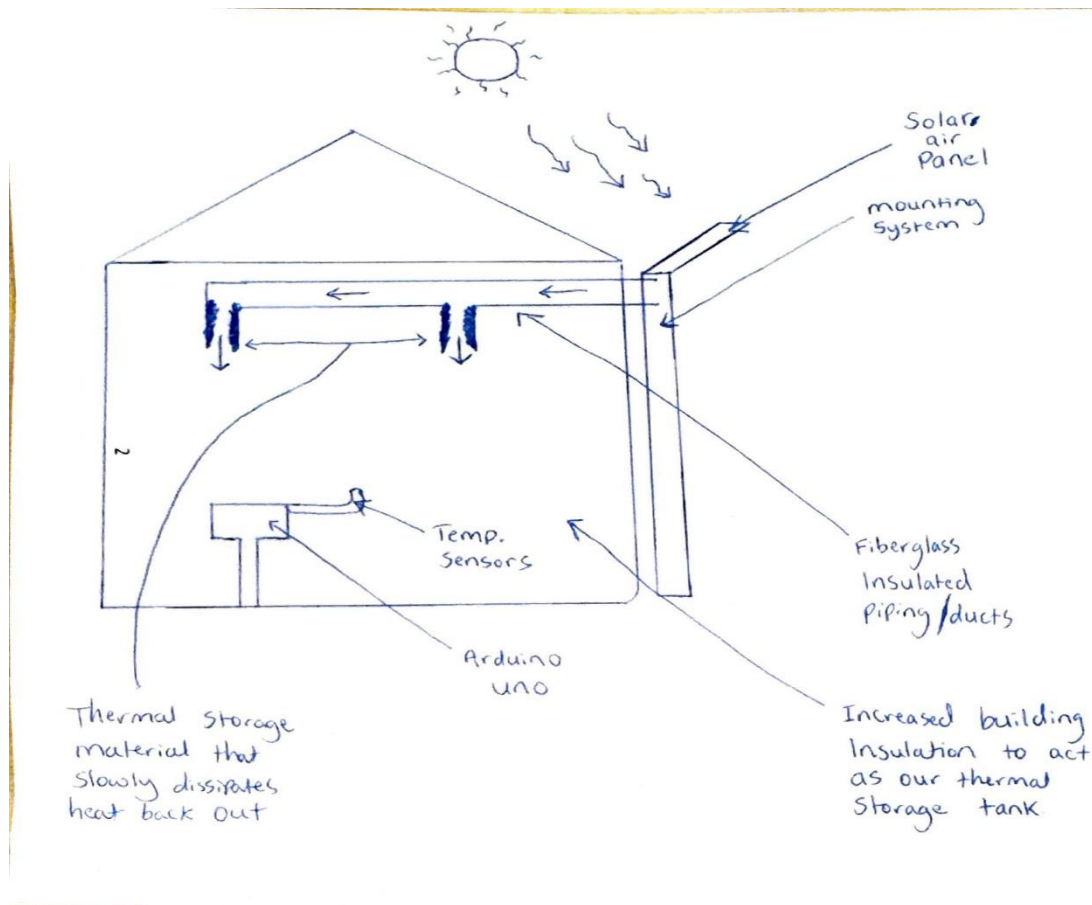 Solar
air
Panel
mounting
System
2
Temp.
Sensors
Fiberglass
Insulated
Piping/ducts
Arduino
uno
Thermal Storage
material that
Slowly dissipates
heat back out
Increased building
Insulation to act
as our thermal
Storage tank